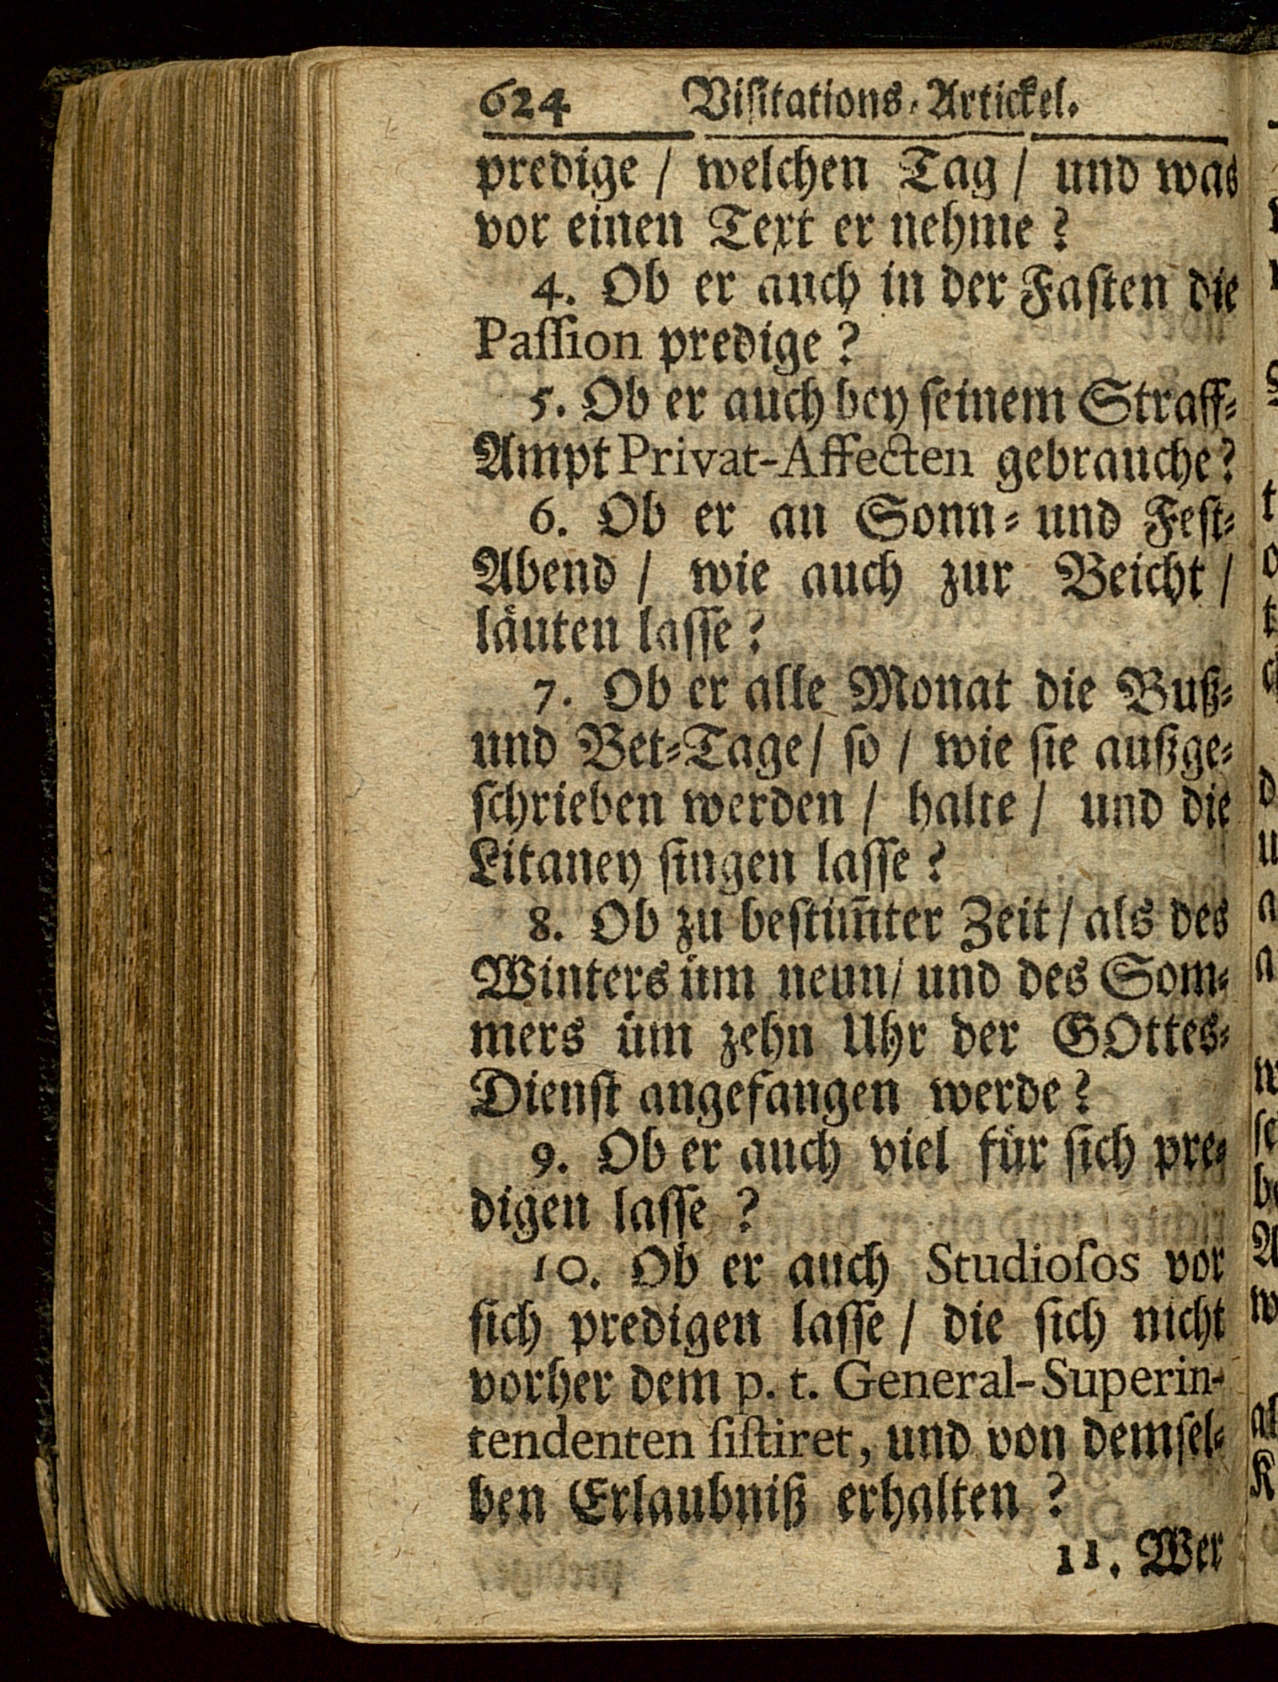 624 Viſitations-Artickel.
predige / welchen Tag / und was
vor einen Text er nehme ?
4. Ob er auch in der Faſten die
Paſſion predige ?
5. Ob er auch bey ſeinem Straff-
Ampt Privat-Affecten gebrauche?
6. Ob er an Sonn- und Feſt-
Abend / wie auch zur Beicht /
läuten laſſe ?
7. Ob er alle Monat die Buß-
und Bet-Tage / ſo / wie ſie außge-
ſchrieben werden / halte / und die
Litaney ſingen laſſe ?
8. Ob zu beſtim̃ter Zeit / als des
Winters üm neun / und des Som-
mers üm zehn Uhr der GOttes-
Dienſt angefangen werde ?
9. Ob er auch viel für ſich pre-
digen laſſe ?
10. Ob er auch Studioſos vor
ſich predigen laſſe / die ſich nicht
vorher dem p. t. General-Superin-
tendenten ſiſtiret, und von demſel-
ben Erlaubniß erhalten ?
11. Wer